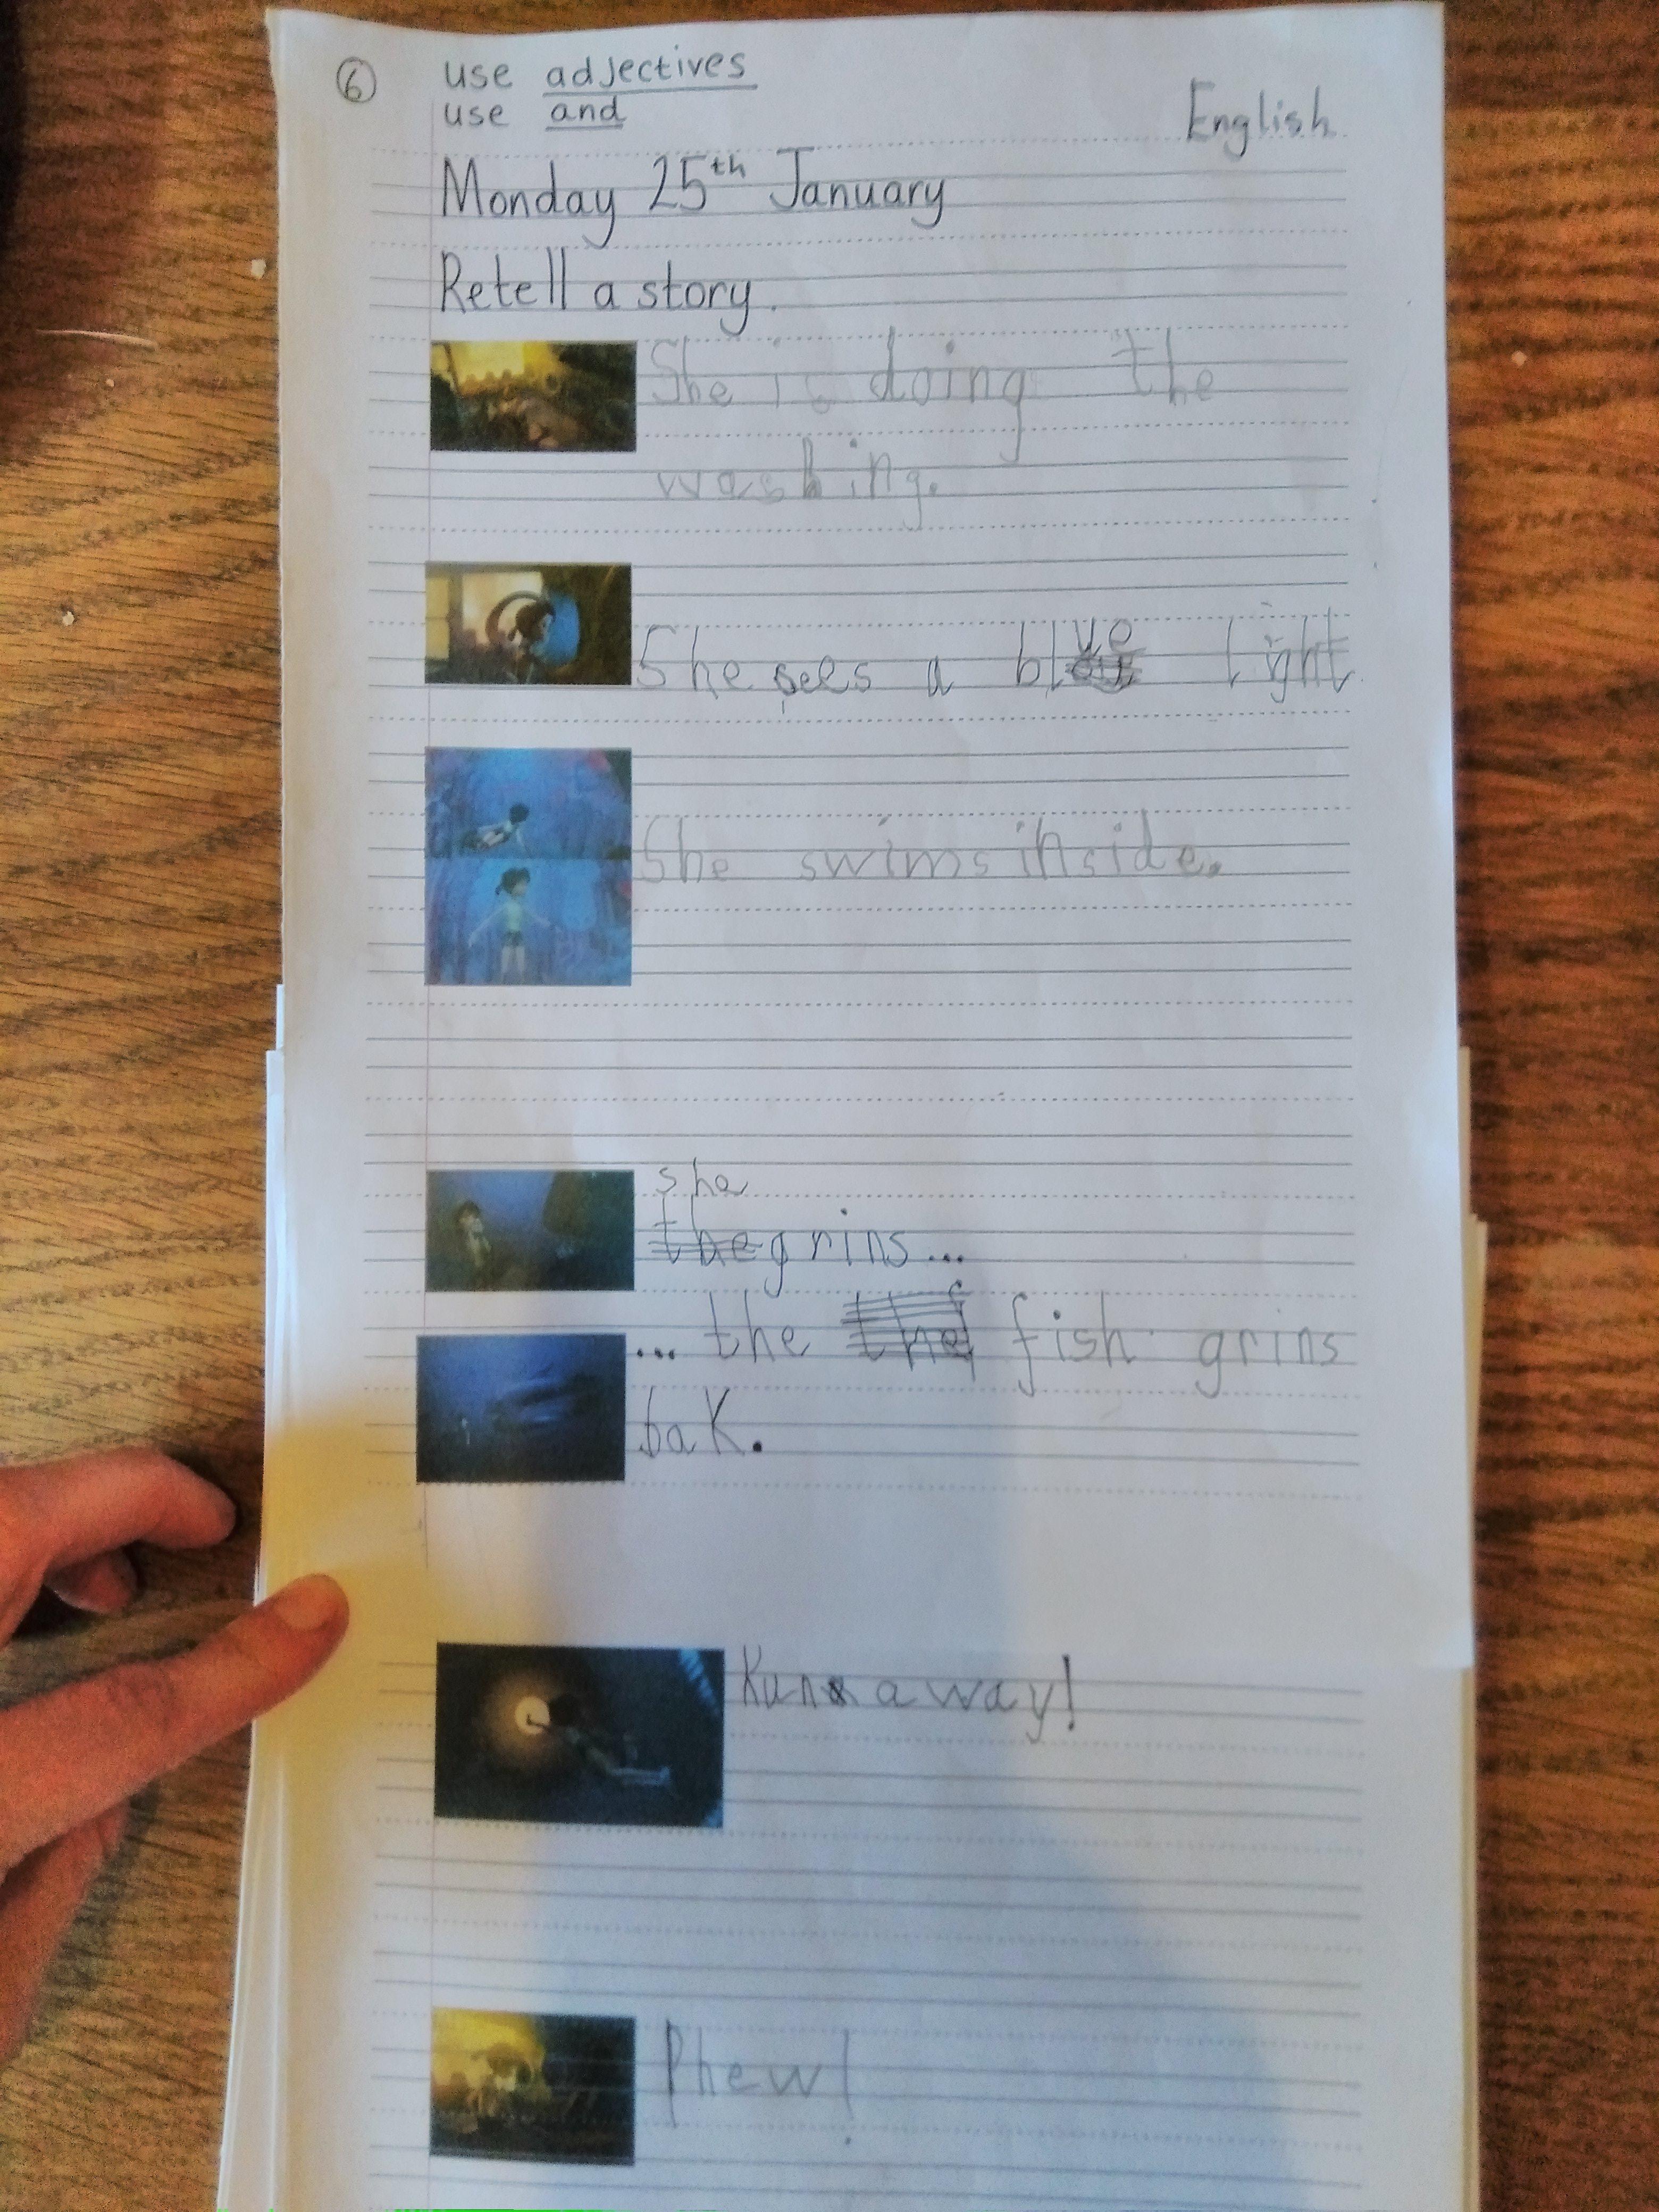 6 use adjectives
use and
English
Monday 25th January
Retell a story.
She is doing the
washing.
She sees a blue light
She swims inside.
she
the grins...
... the the fish grins
bak.
Run away!
Phew!